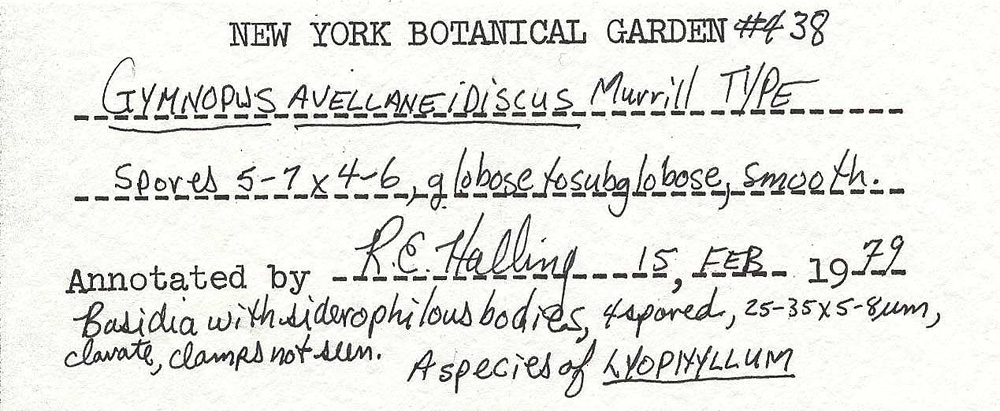 NEW YORK BOTANICAL GARDEN #438
GYMNOPUS AVELLANEIDISCUS Murrill TYPE
Spores 5-7 x 4-6, globose to subglobose, smooth.
Annotated by R.E. Halling 15, FEB 1979
Basidia with siderophilous bodies, 4 spored, 25-35 x 5-8 um,
clavate, clamps not seen.
A species of LYOPHYLLUM